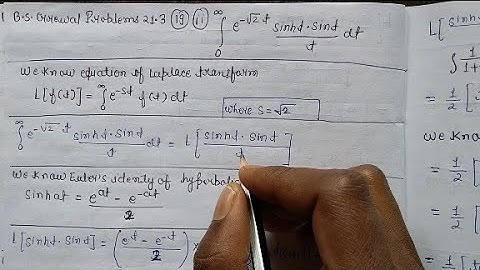 B.S. Grewal Problems 21.3 (19) (ii) ∫₀^∞ e^(-√2 t) (sinht · sint)/t dt
We know equation of Laplace transform
L[f(t)] = ∫₀^∞ e^(-st) f(t) dt
where s = √2
∫₀^∞ e^(-√2 t) (sinht · sint)/t dt = L[(sinht · sint)/t]
We know Euler's identity of
sinhat = (e^(at) - e^(-at))/2
L[sinht · sint] = ((e^t - e^(-t))/2)
L[sinh
∫ 1/
= 1/2 [
= 1/2 [
We kno
= 1/2 [
= 1/2 [